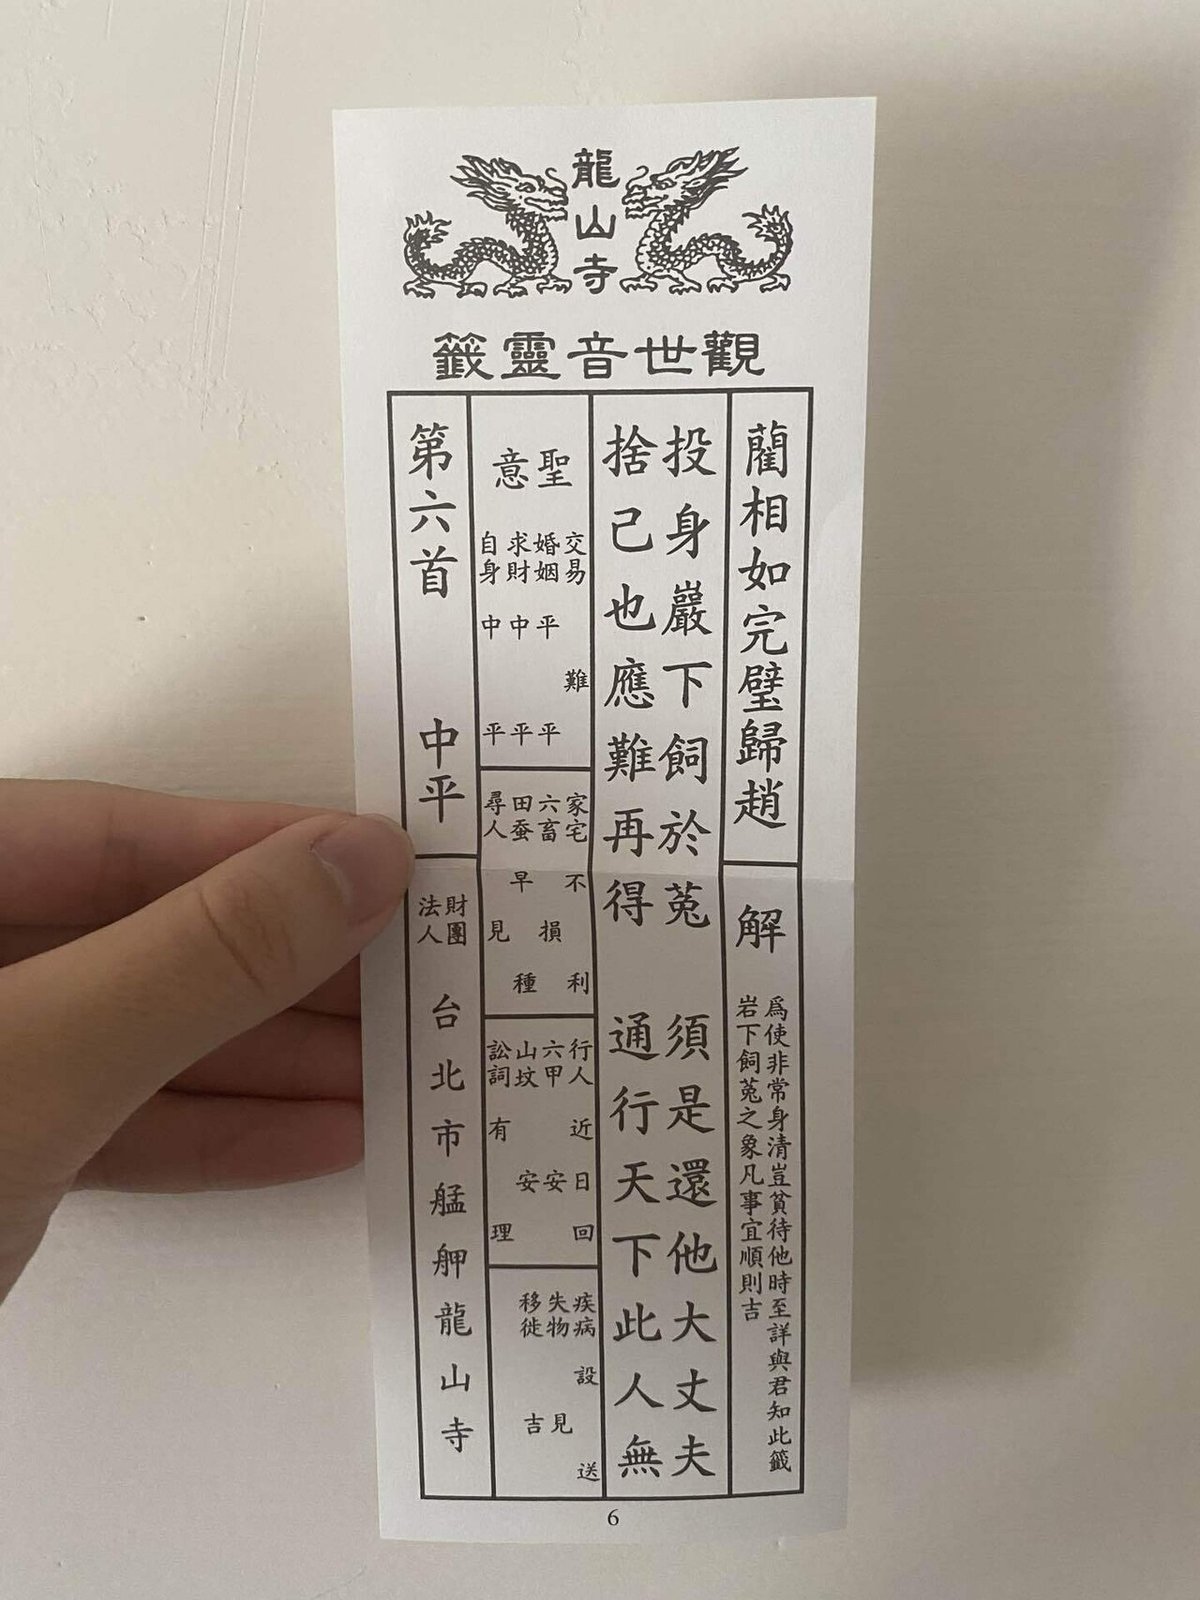 龍山寺
觀世音靈籤
藺相如完璧歸趙
解
爲使非常身清豈貧待他時至詳與君知此籤
岩下飼菟之象凡事宜順則吉
投身嚴下飼於菟 須是還他大丈夫
捨己也應難再得 通行天下此人無
聖意
交易 難
婚姻 平 平
求財 中平
自身 中平
家宅 不利
六畜 損
田蚕 早種
尋人 見
行人 近日回
六甲 安
山坟 安
訟詞 有理
疾病 設送
失物 見
移徙 吉
第六首 中平
財團
法人
台北市艋舺龍山寺
6